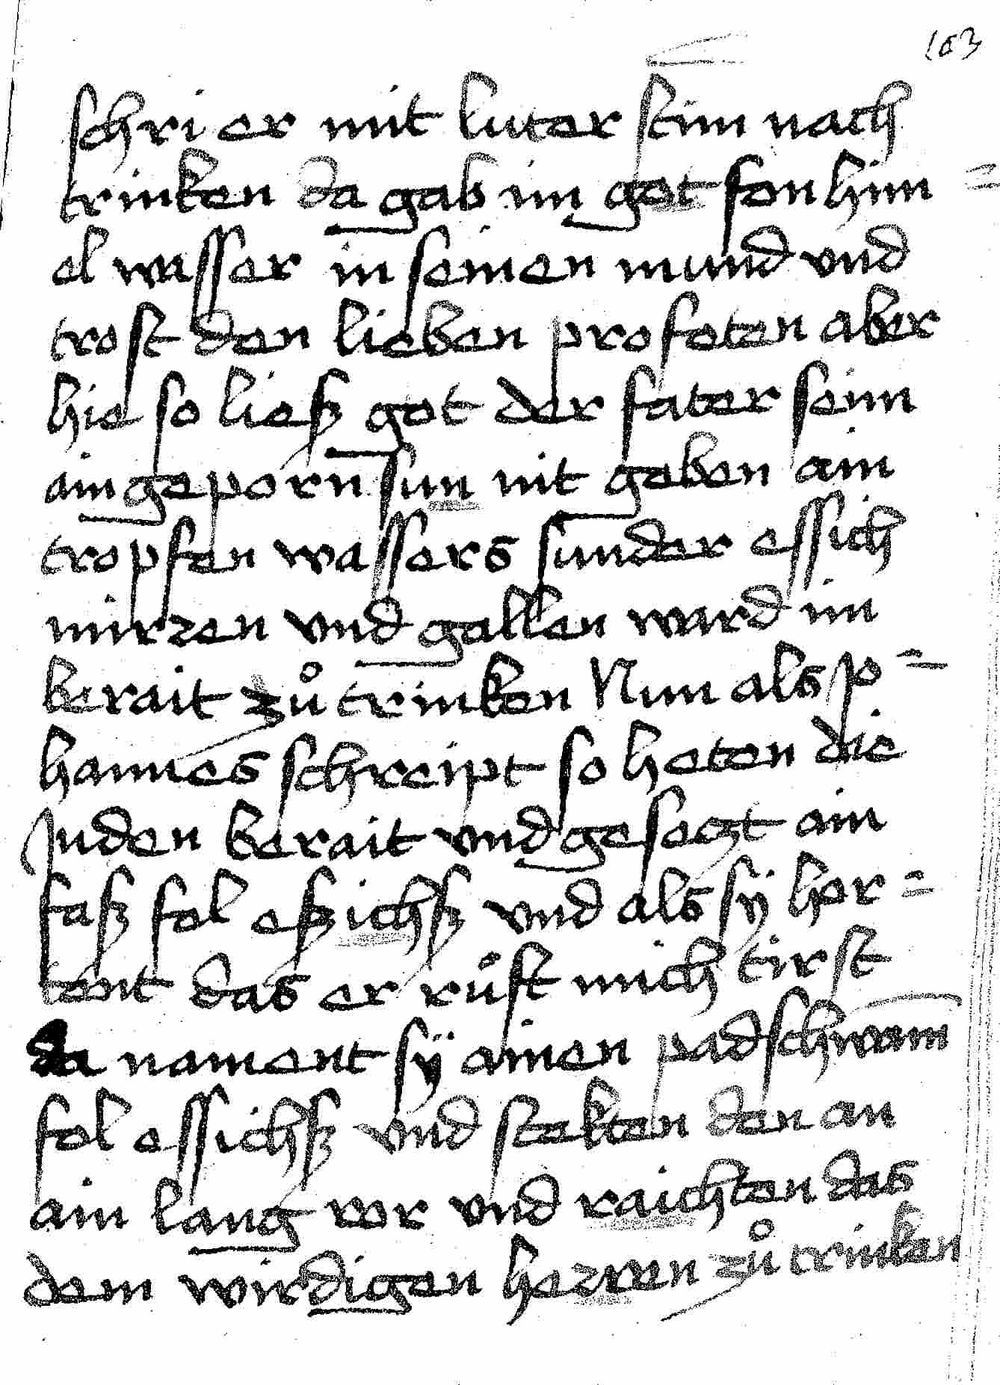 103
schri er mit luter stim nach
trinken da gab im got fon him=
el wasser in seinen mund und
trost den lieben profeten aber
hie so liesz got der fater seim
aingeporn sun nit geben ain
tropfen wassers sunder essich
mirren und gallen ward im
berait zů trinken Nun als jo=
hannes schreipt so heten die
Juden berait und gesetzt ain
fasz fol eszichsz und als sÿ hor=
tent das er růft mich tirst
da nament sÿ ainen padschwam̅
fol essichsz und stekten den an
ain lang ror und raichten das
dem wirdigen herren zů trinken